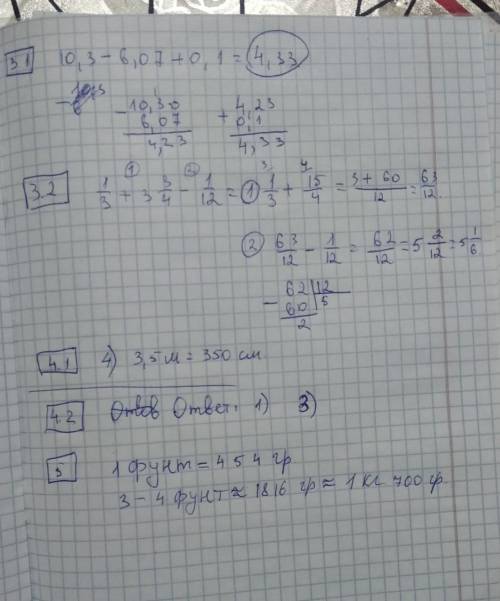 3.1 10,3 - 6,07 + 0,1 = 4,33
- 10,30
6,07
4,23
+ 4,23
0,1
4,33
3.2 1/3 + 3 3/4 - 1/12 = ① 1/3 + 15/4 = (3 + 60)/12 = 63/12
① ② 3 4
② 63/12 - 1/12 = 62/12 = 5 2/12 = 5 1/6
- 62 | 12
60 5
2
4.1 4) 3,5 м = 350 см
4.2 Ответ: 1) 3)
5 1 фунт = 454 гр
3 - 4 фунт ≈ 1816 гр ≈ 1 кг 700 гр